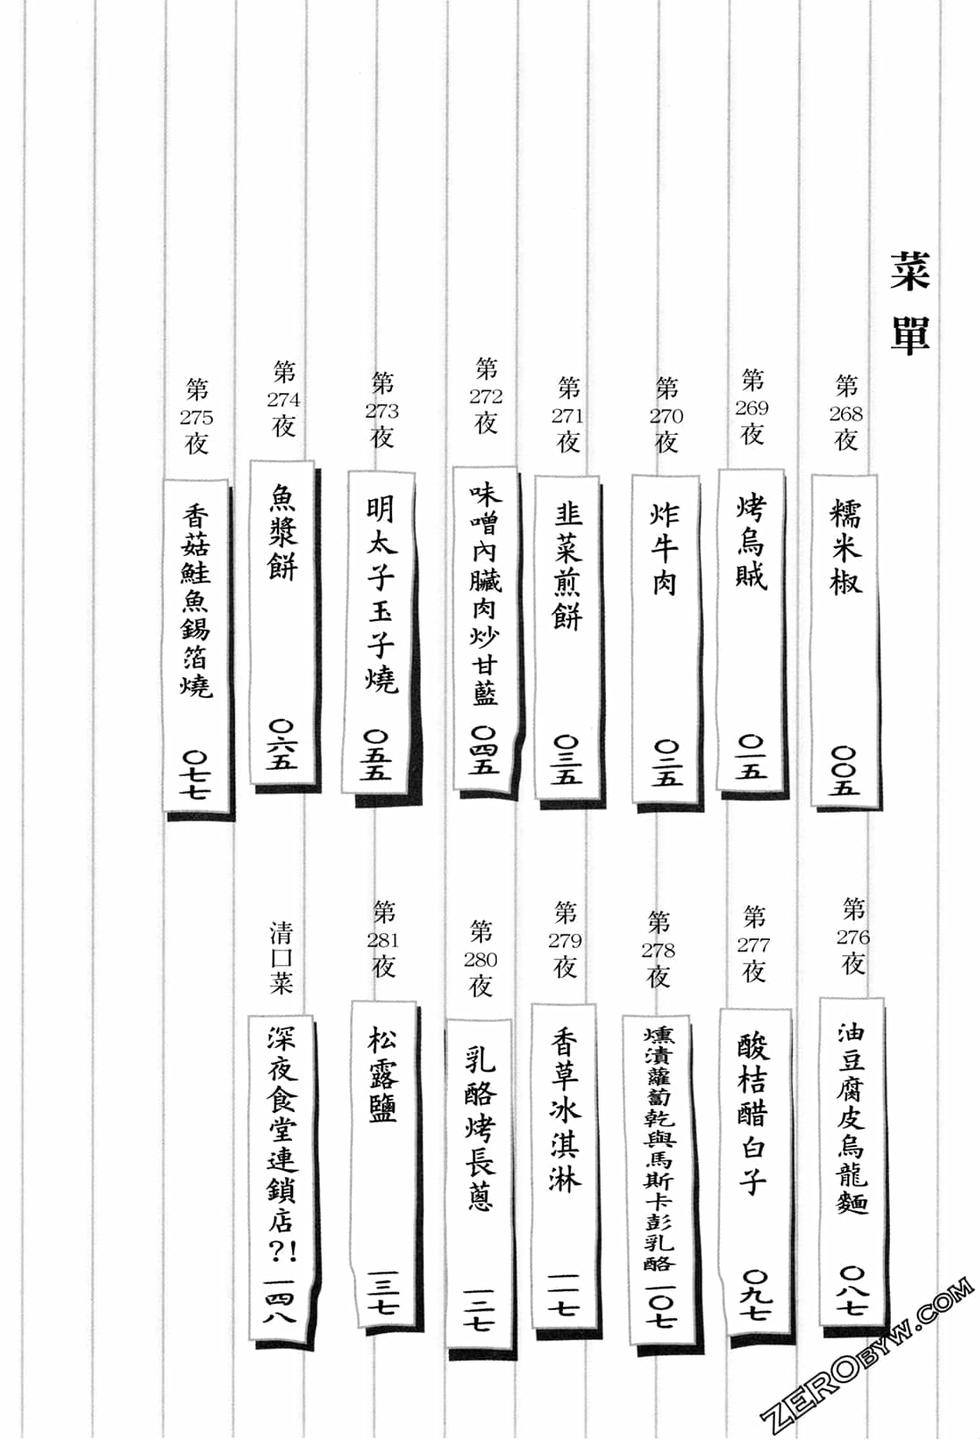 菜單
第268夜
糯米椒 〇〇五
第269夜
烤烏賊 〇一五
第270夜
炸牛肉 〇二五
第271夜
韭菜煎餅 〇三五
第272夜
味噌內臟肉炒甘藍 〇四五
第273夜
明太子玉子燒 〇五五
第274夜
魚漿餅 〇六五
第275夜
香菇鮭魚錫箔燒 〇七七
第276夜
油豆腐皮烏龍麵 〇八七
第277夜
酸桔醋白子 〇九七
第278夜
燻漬蘿蔔乾與馬斯卡彭乳酪 一〇七
第279夜
香草冰淇淋 一一七
第280夜
乳酪烤長蔥 一二七
第281夜
松露鹽 一三七
清口菜
深夜食堂連鎖店?! 一四八
ZEROBYW.COM